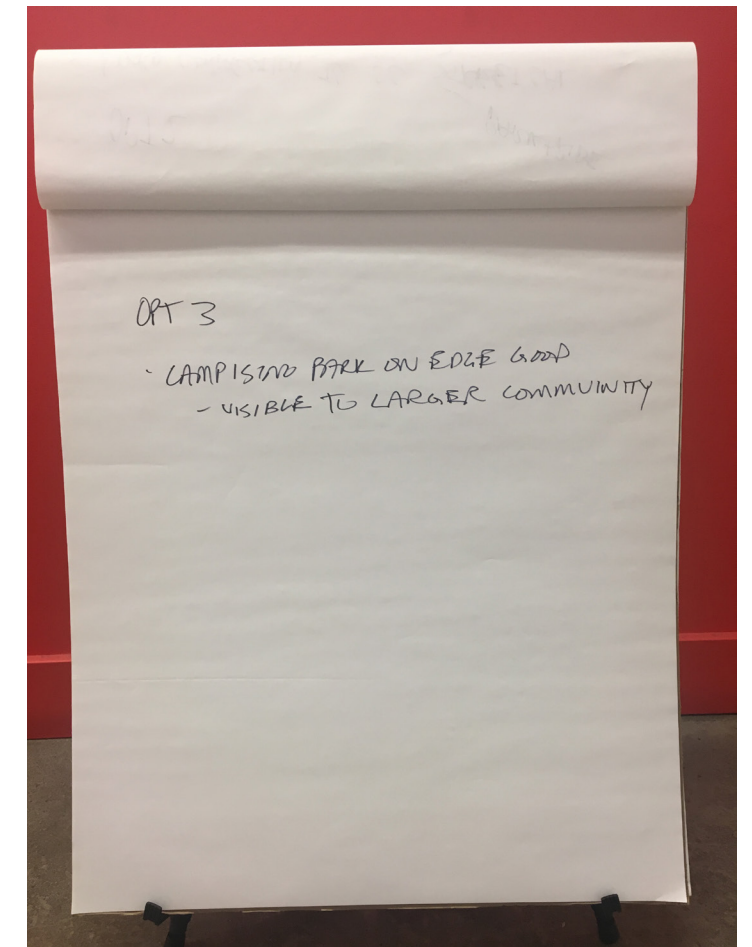 OPT 3
· CAMPISINO PARK ON EDGE GOOD
- VISIBLE TO LARGER COMMUINITY